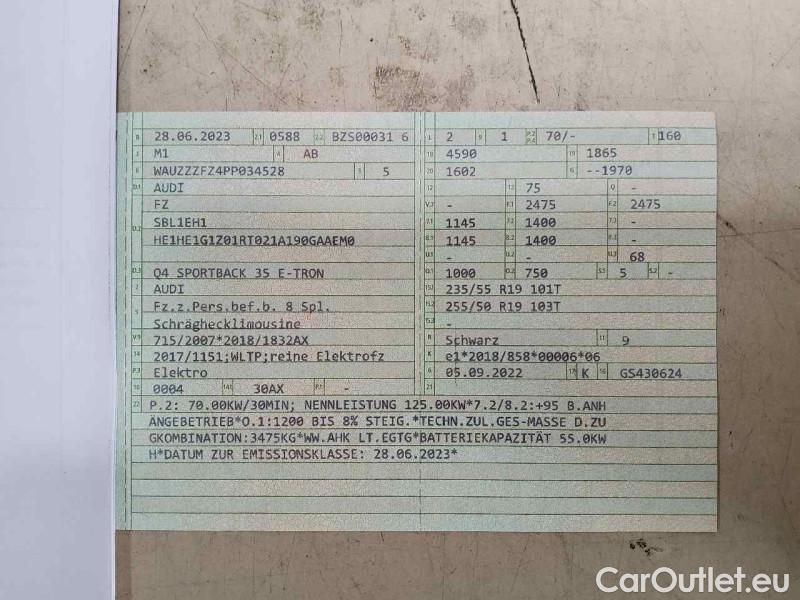 B 28.06.2023 2.1 0588 2.2 BZS00031 6
J M1 4 AB
E WAUZZZFZ4PP034528 3 5
D.1 AUDI
FZ
D.2 SBL1EH1
HE1HE1G1Z01RT021A190GAAEM0
D.3 Q4 SPORTBACK 35 E-TRON
2 AUDI
5 Fz.z.Pers.bef.b. 8 Spl.
Schräghecklimousine
V.9 715/2007*2018/1832AX
14 2017/1151;WLTP;reine Elektrofz
P.3 Elektro
10 0004 14.1 30AX P.1 -
L 2 9 1 P.2 P.4 70/- T 160
18 4590 19 1865
20 1602 G --1970
12 13 75 Q -
V.7 - F.1 2475 F.2 2475
7.1 1145 7.2 1400 7.3 -
8.1 1145 8.2 1400 8.3 -
U.1 - U.2 - U.3 68
O.1 1000 O.2 750 S.1 5 S.2 -
15.1 235/55 R19 101T
15.2 255/50 R19 103T
15.3 -
R Schwarz 11 9
K e1*2018/858*00006*06
6 05.09.2022 17 K 16 GS430624
21
22 P.2: 70.00KW/30MIN; NENNLEISTUNG 125.00KW*7.2/8.2:+95 B.ANH
ÄNGEBETRIEB*O.1:1200 BIS 8% STEIG.*TECHN.ZUL.GES-MASSE D.ZU
GKOMBINATION:3475KG*WW.AHK LT.EGTG*BATTERIEKAPAZITÄT 55.0KW
H*DATUM ZUR EMISSIONSKLASSE: 28.06.2023*
CarOutlet.eu